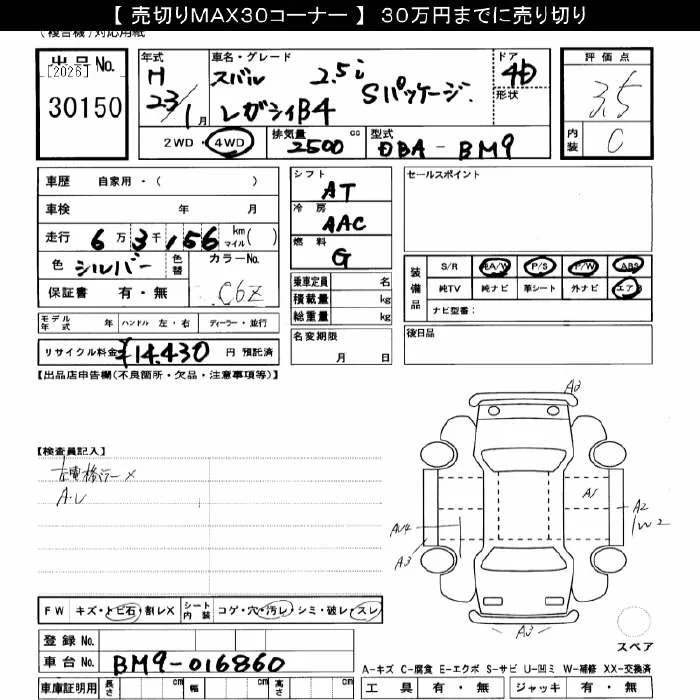 【 売切りMAX30コーナー 】 30万円までに売り切り
(複合機)対応用紙
出品No.
[2026]
30150
年式
H
23/1月
車名・グレード
スバル 2.5i
レガシィB4 Sパッケージ
ドア
4D
形状
評価点
3.5
内装
C
2WD・4WD
排気量
2500 cc
型式
DBA-BM9
車歴 自家用・( )
車検 年 月
走行 6万3千156 km マイル( )
色 シルバー 色替
カラーNo.
C6Z
保証書 有・無
シフト
AT
冷房
AAC
燃料
G
乗車定員 名
積載量 kg
総重量 kg
セールスポイント
装備品
S/R 純A/W P/S P/W ABS
純TV 純ナビ 革シート 外ナビ エアB
ナビ型番:
モデル年式 年 ハンドル 左・右 ディーラー・並行
名変期限
月 日
後日品
リサイクル料金 ¥14,430 円 預託済
【出品店申告欄(不良箇所・欠品・注意事項等)】
【検査員記入】
A・U
A3
A1
A2
W2
A3
A3
FW キズ・トビ石・割レX シート内装 コゲ・穴・汚レ・シミ・破レ・スレ
スペア
登録No.
車台No. BM9-016860
A-キズ C-腐食 E-エクボ S-サビ U-凹ミ W-補修 XX-交換済
車庫証明用 長さ cm 幅 cm 高さ cm
工具 有・無 ジャッキ 有・無